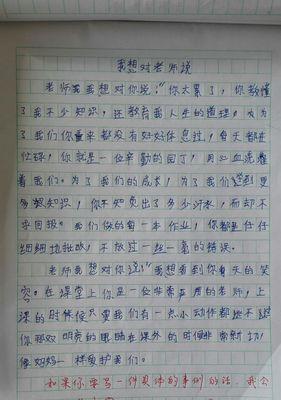 我想对老师说
老师我我想对你说:"你太累了,你教懂
了我不少知识,还教育我人生的道理,为
了我们你量来都没有好好休息过,每天都在
忙碌,你就是一位辛勤的园丁,用心血浇灌
着我们。为了我们的成长,为了我们
多的知识,你不知负出了多少汗水,而却不
求回报。我们做的每一本作业,你都是仔仔
细细地批改,不放过一丝一毫的错误。
老师我想对你说:"我想看到你每天的笑
容。在课堂上你是一位非常严厉的老师,上
课的时候只要我们有一点小动作都逃不过
你那双明亮的眼睛在课外的时候非常亲切,
像妈妈一样爱护我们。
如果你要写一件具体的事例的话,我会